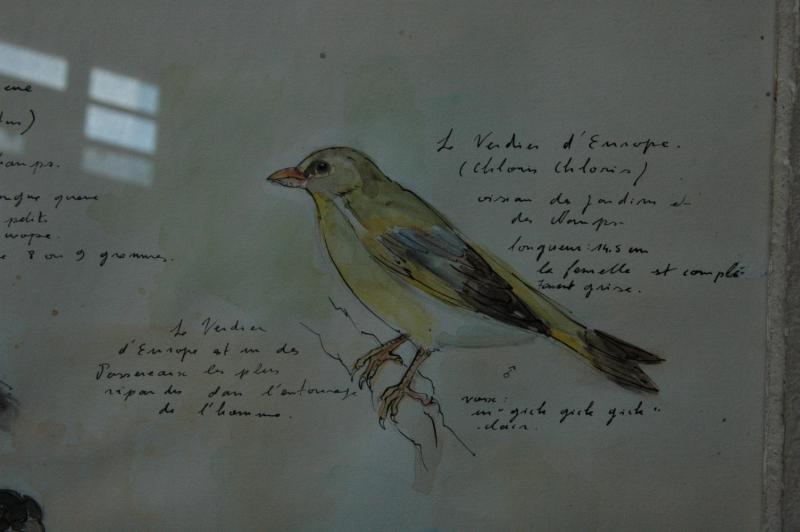 une
champs.
longue queue
petit
8 ou 9 grammes.
Le Verdier d'Europe.
(Chloris Chloris)
oiseau des jardins et
des champs.
longueur: 14.5 cm
la femelle est complé-
tement grise.
Le Verdier
d'Europe est un des
Passereaux les plus
répandus dans l'entourage
de l'homme.
♂
voix:
un "gick gick gick"
clair.